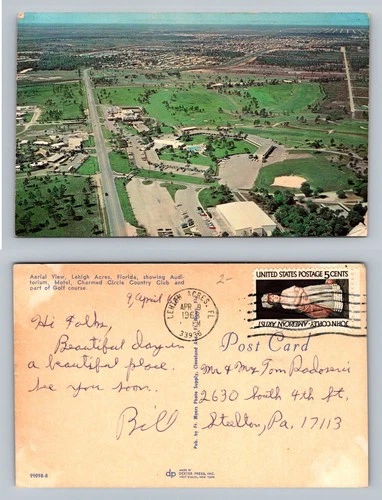 Aerial View, Lehigh Acres, Florida, showing Audi-
torium, Motel, Charmed Circle Country Club and
part of Golf course.
9 april
2-
LEHIGH ACRES, FL
APR 9
1968
33936
UNITED STATES POSTAGE 5 CENTS
JOHN COPLEY · AMERICAN ARTIST
Hi Folks,
Beautiful day in
a beautiful place.
See you soon.
Bill
Post Card
Mr & Mrs Tom
2630 South 4th St.
Steelton, Pa. 17113
Pub. by Ft. Myers Photo Supply, Cleveland
99098-B
dp
MADE BY
DEXTER PRESS, INC.
WEST NYACK, NEW YORK